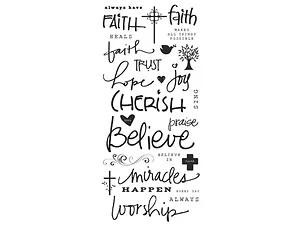 always have
FAITH
faith
HEALS
MAKES
ALL THINGS
POSSIBLE
faith
TRUST
hope
Joy
CHERISH
SING
praise
Believe
BELIEVE
IN
miracles
HAPPEN
EVERY DAY
ALWAYS
Worship